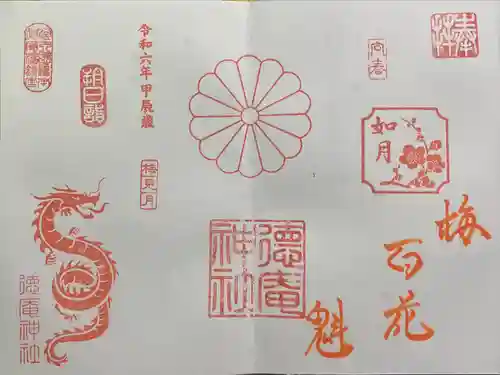 奉拝
向春
如月
梅
百花
魁
令和六年甲辰歳
梅見月
德庵
神社
朔日詣
德庵神社